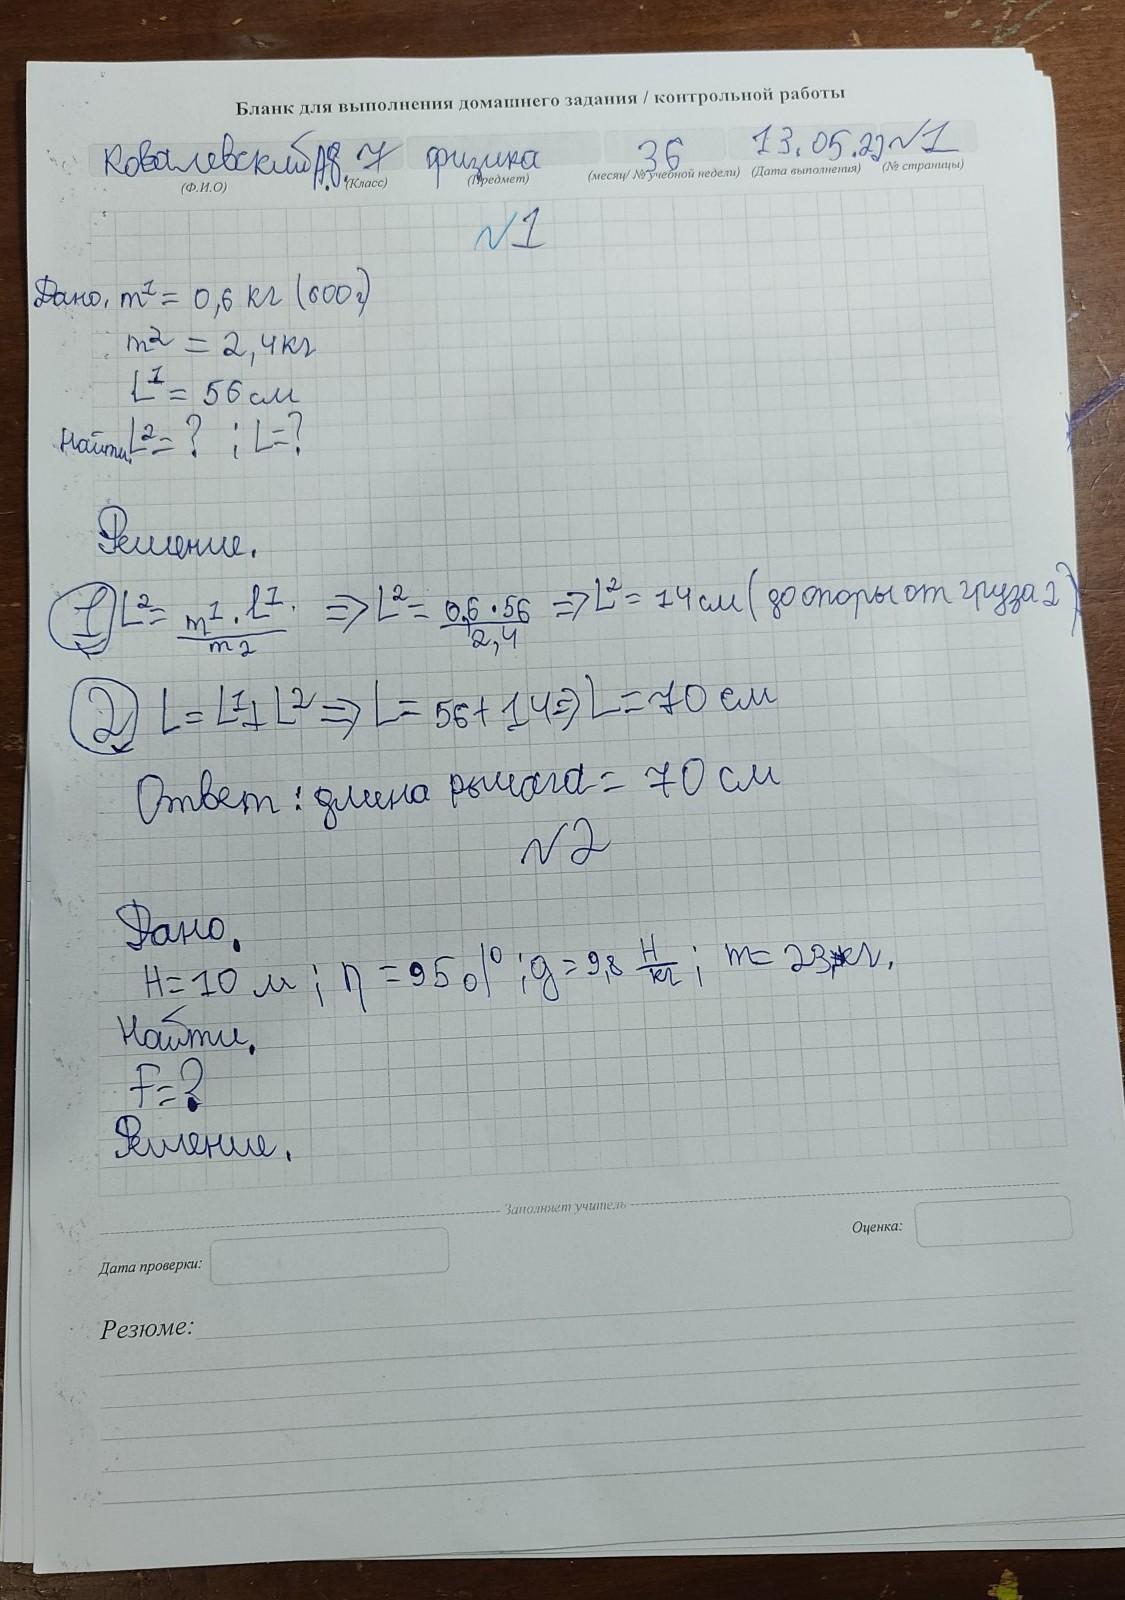 Бланк для выполнения домашнего задания / контрольной работы
Ковалевский 7 физика 36 13.05.22 №1
(Ф.И.О) (Класс) (Предмет) (месяц/ № учебной недели) (Дата выполнения) (№ страницы)
№1
Дано. m¹ = 0,6 кг (600г)
m² = 2,4кг
L¹ = 56 см
Найти. L² = ? ; L=?
Решение.
1) L² = m¹ · L¹ / m2 => L² = 0,6 · 56 / 2,4 => L² = 14 см (до опоры от груза 2)
2) L = L¹ + L² => L = 56 + 14 => L = 70 см
Ответ: длина рычага = 70 см
№2
Дано.
H = 10 м ; η = 95 % ; g = 9,8 Н/кг ; m = 23 кг.
Найти.
F = ?
Решение.
Заполняет учитель
Дата проверки: Оценка:
Резюме: